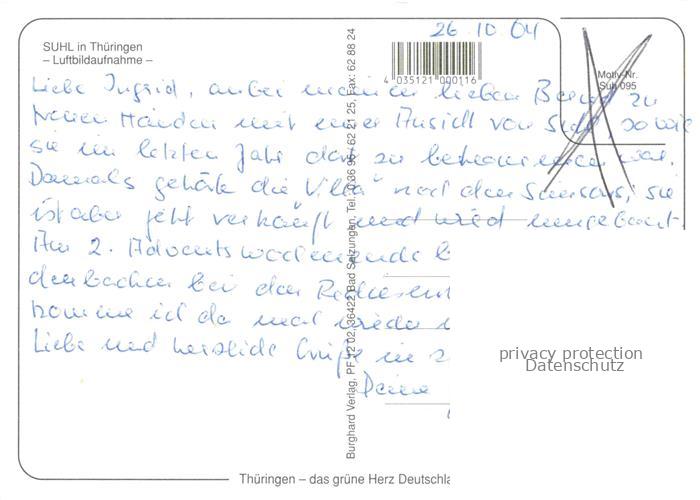 26.10.04
SUHL in Thüringen
– Luftbildaufnahme –
4 035121 000116
Motiv-Nr.
Suhl 095
Liebe Ingrid, anbei meinen lieben zu
Händen mit einer Ansicht von Suhl, so wie
sie im letzten Jahr da zu bekommen war.
Damals gehörte die Villa noch den Simsons, sie
ist aber jetzt verkauft und wird umgebaut.
Am 2. Adventswochenende
bei den
komme ich da mal wieder
Liebe und herzliche Grüße in
Deine
Burghard Verlag, PF 12 02, 36422 Bad Salzungen, Tel. 0 36 95 - 62 21 25, Fax: 62 88 24
privacy protection
Datenschutz
Thüringen – das grüne Herz Deutschla